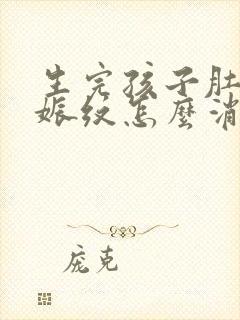 生完孩子肚
娠纹怎麼消
庞克